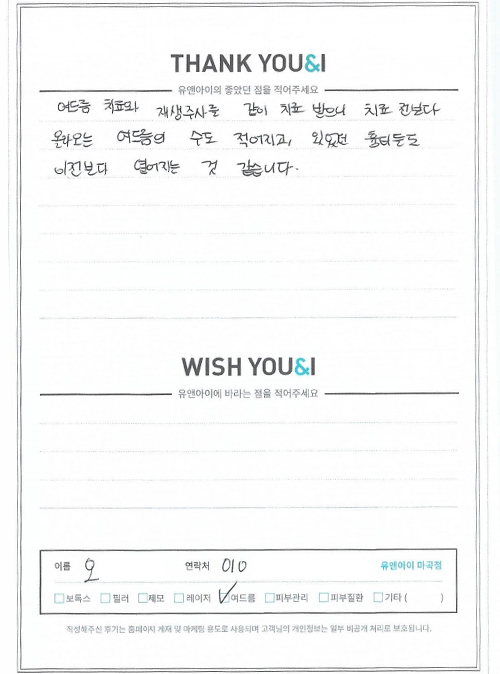 THANK YOU&I
유앤아이의 좋았던 점을 적어주세요
여드름 치료와 재생주사를 같이 치료 받으니 치료 전보다
올라오는 여드름의 수도 적어지고, 있었던 흉터들도
이전보다 옅어지는 것 같습니다.
WISH YOU&I
유앤아이에 바라는 점을 적어주세요
이름 오 연락처 010 유앤아이 마곡점
보톡스 필러 제모 레이저 여드름 피부관리 피부질환 기타 ( )
작성해주신 후기는 홈페이지 게재 및 마케팅 용도로 사용되며 고객님의 개인정보는 일부 비공개 처리로 보호됩니다.